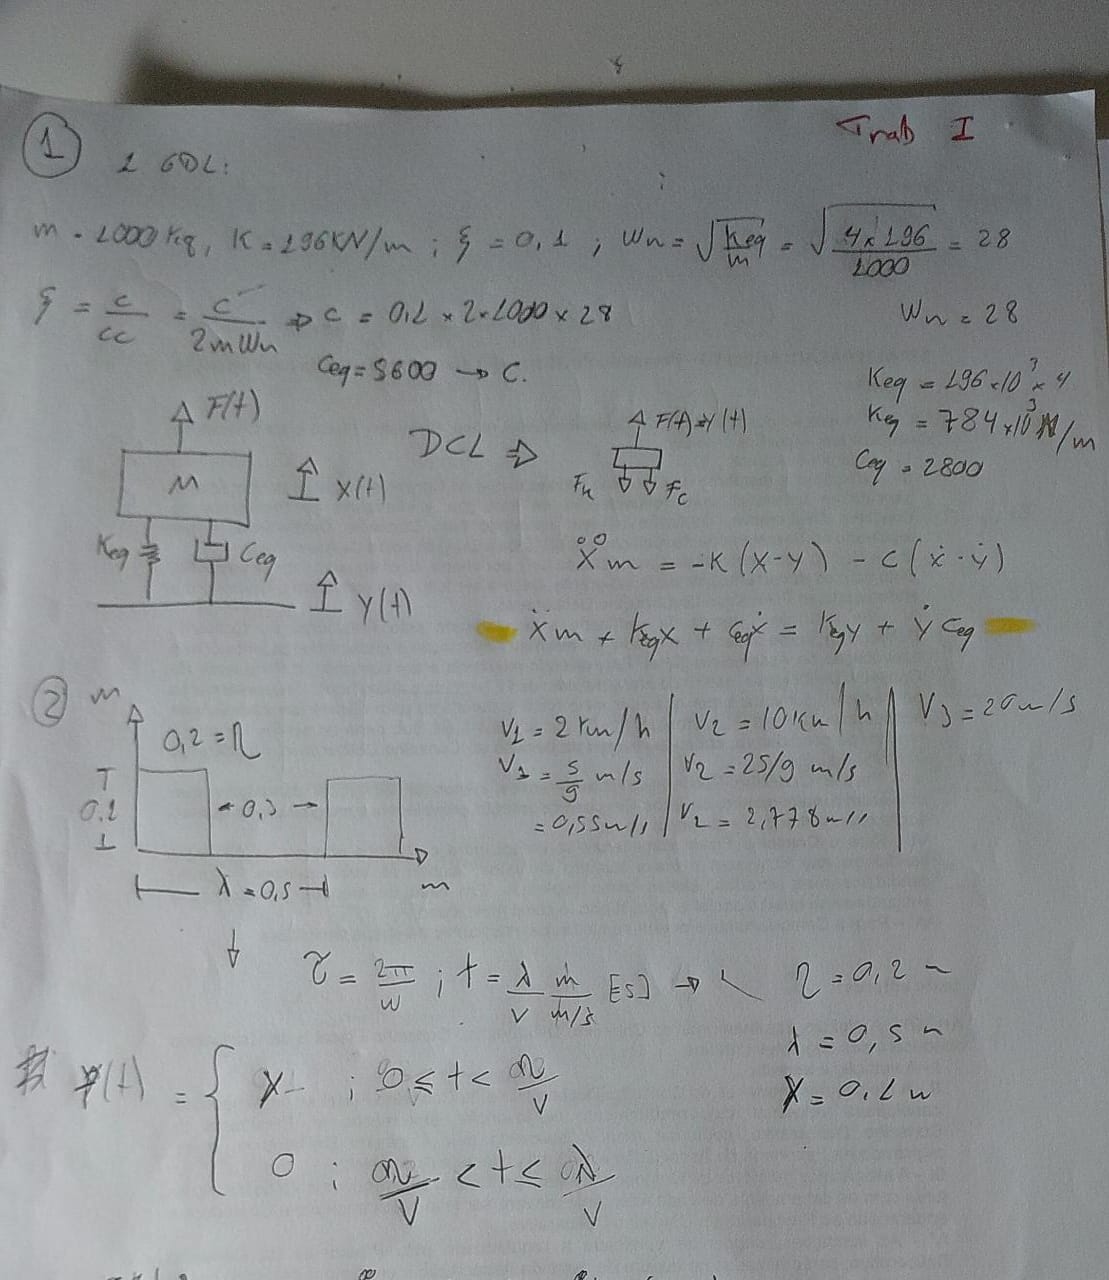 Trab I
① 1 GDL:
m = 1000 Kg, K = 196 KN/m ; ξ = 0,1 ; Wn = √(Keq/m) = √(4x196/1000) = 28
ξ = c/cc = c/2mWn ⇒ c = 0,1 x 2 x 1000 x 28
Wn = 28
Ceq = 5600 → C.
Keq = 196x10³ x 4
Keq = 784x10³ N/m
Ceq = 2800
F(t)
M
X(t)
Keq
Ceq
Y(t)
DCL ⇒
Fk
Fc
ẍm = -K(x-y) - c(ẋ-ẏ)
ẍm + Keqx + Ceqẋ = Keqy + ẏCeq
② m
0,2 = η
0.1
0,3
λ = 0,5
m
V1 = 2 km/h
V1 = 5/9 m/s
= 0,55 m/s
V2 = 10 km/h
V2 = 25/9 m/s
V2 = 2,778 m/s
V3 = 20 m/s
τ = 2π/w ; t = λ/v m/m/s [s] →
η = 0,2 m
λ = 0,5 m
X = 0,1 m
y(t) = { X ; 0 ≤ t < η/v
0 ; η/v < t ≤ λ/v